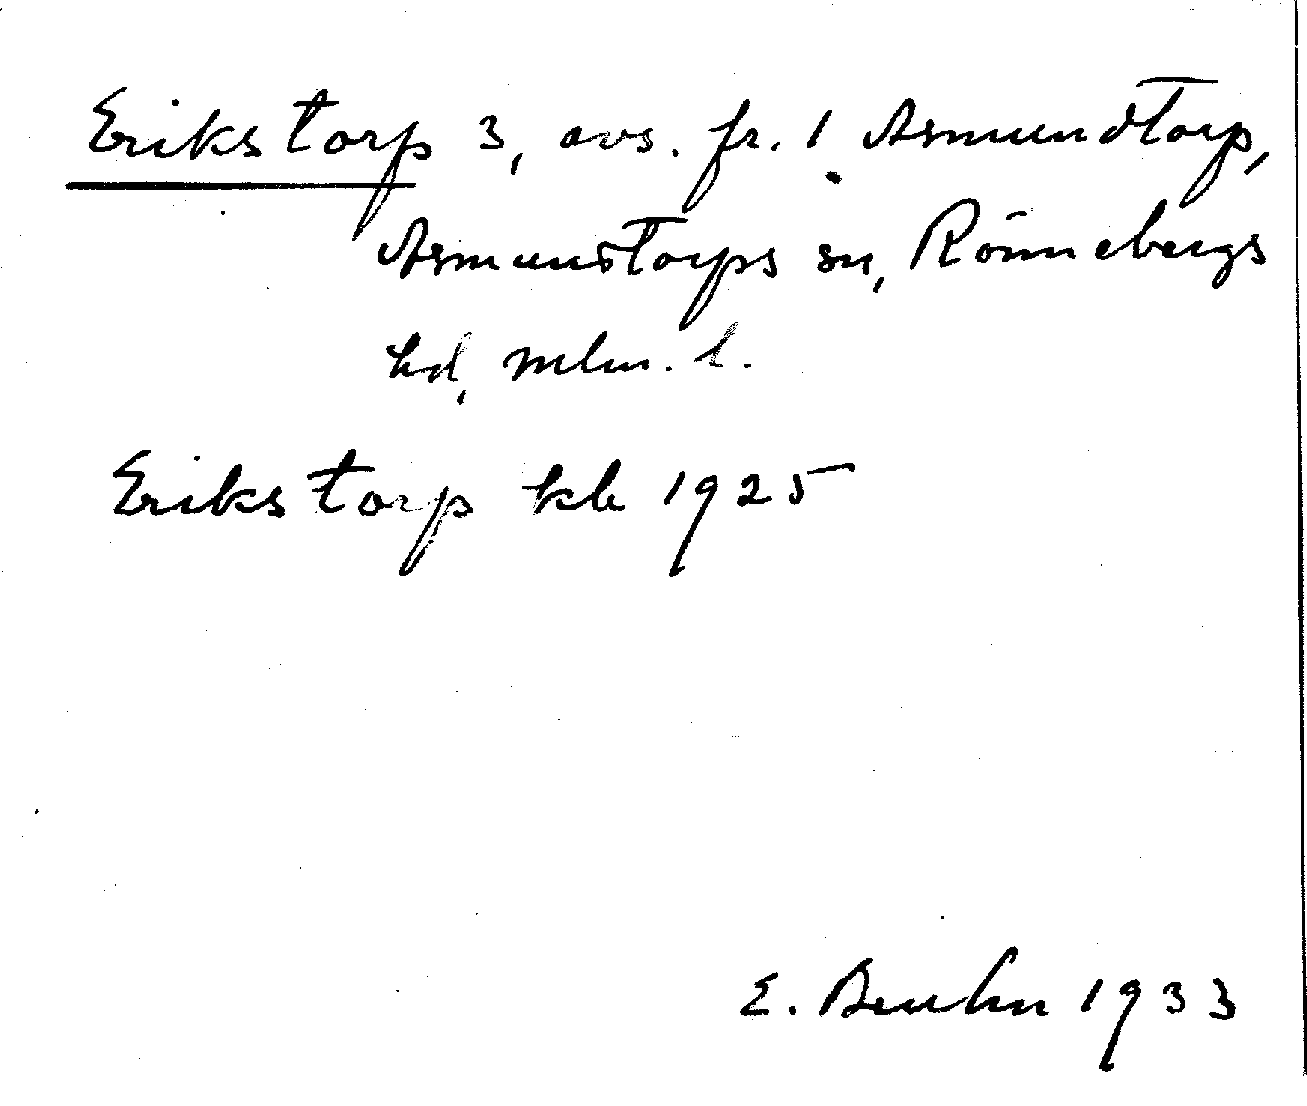 Erikstorp 3, avs. fr. 1 Asmundtorp,
Asmundtorps sn, Rönnebergs
hd, Mlm. l.
Erikstorp kb 1925
E. Bruhn 1933